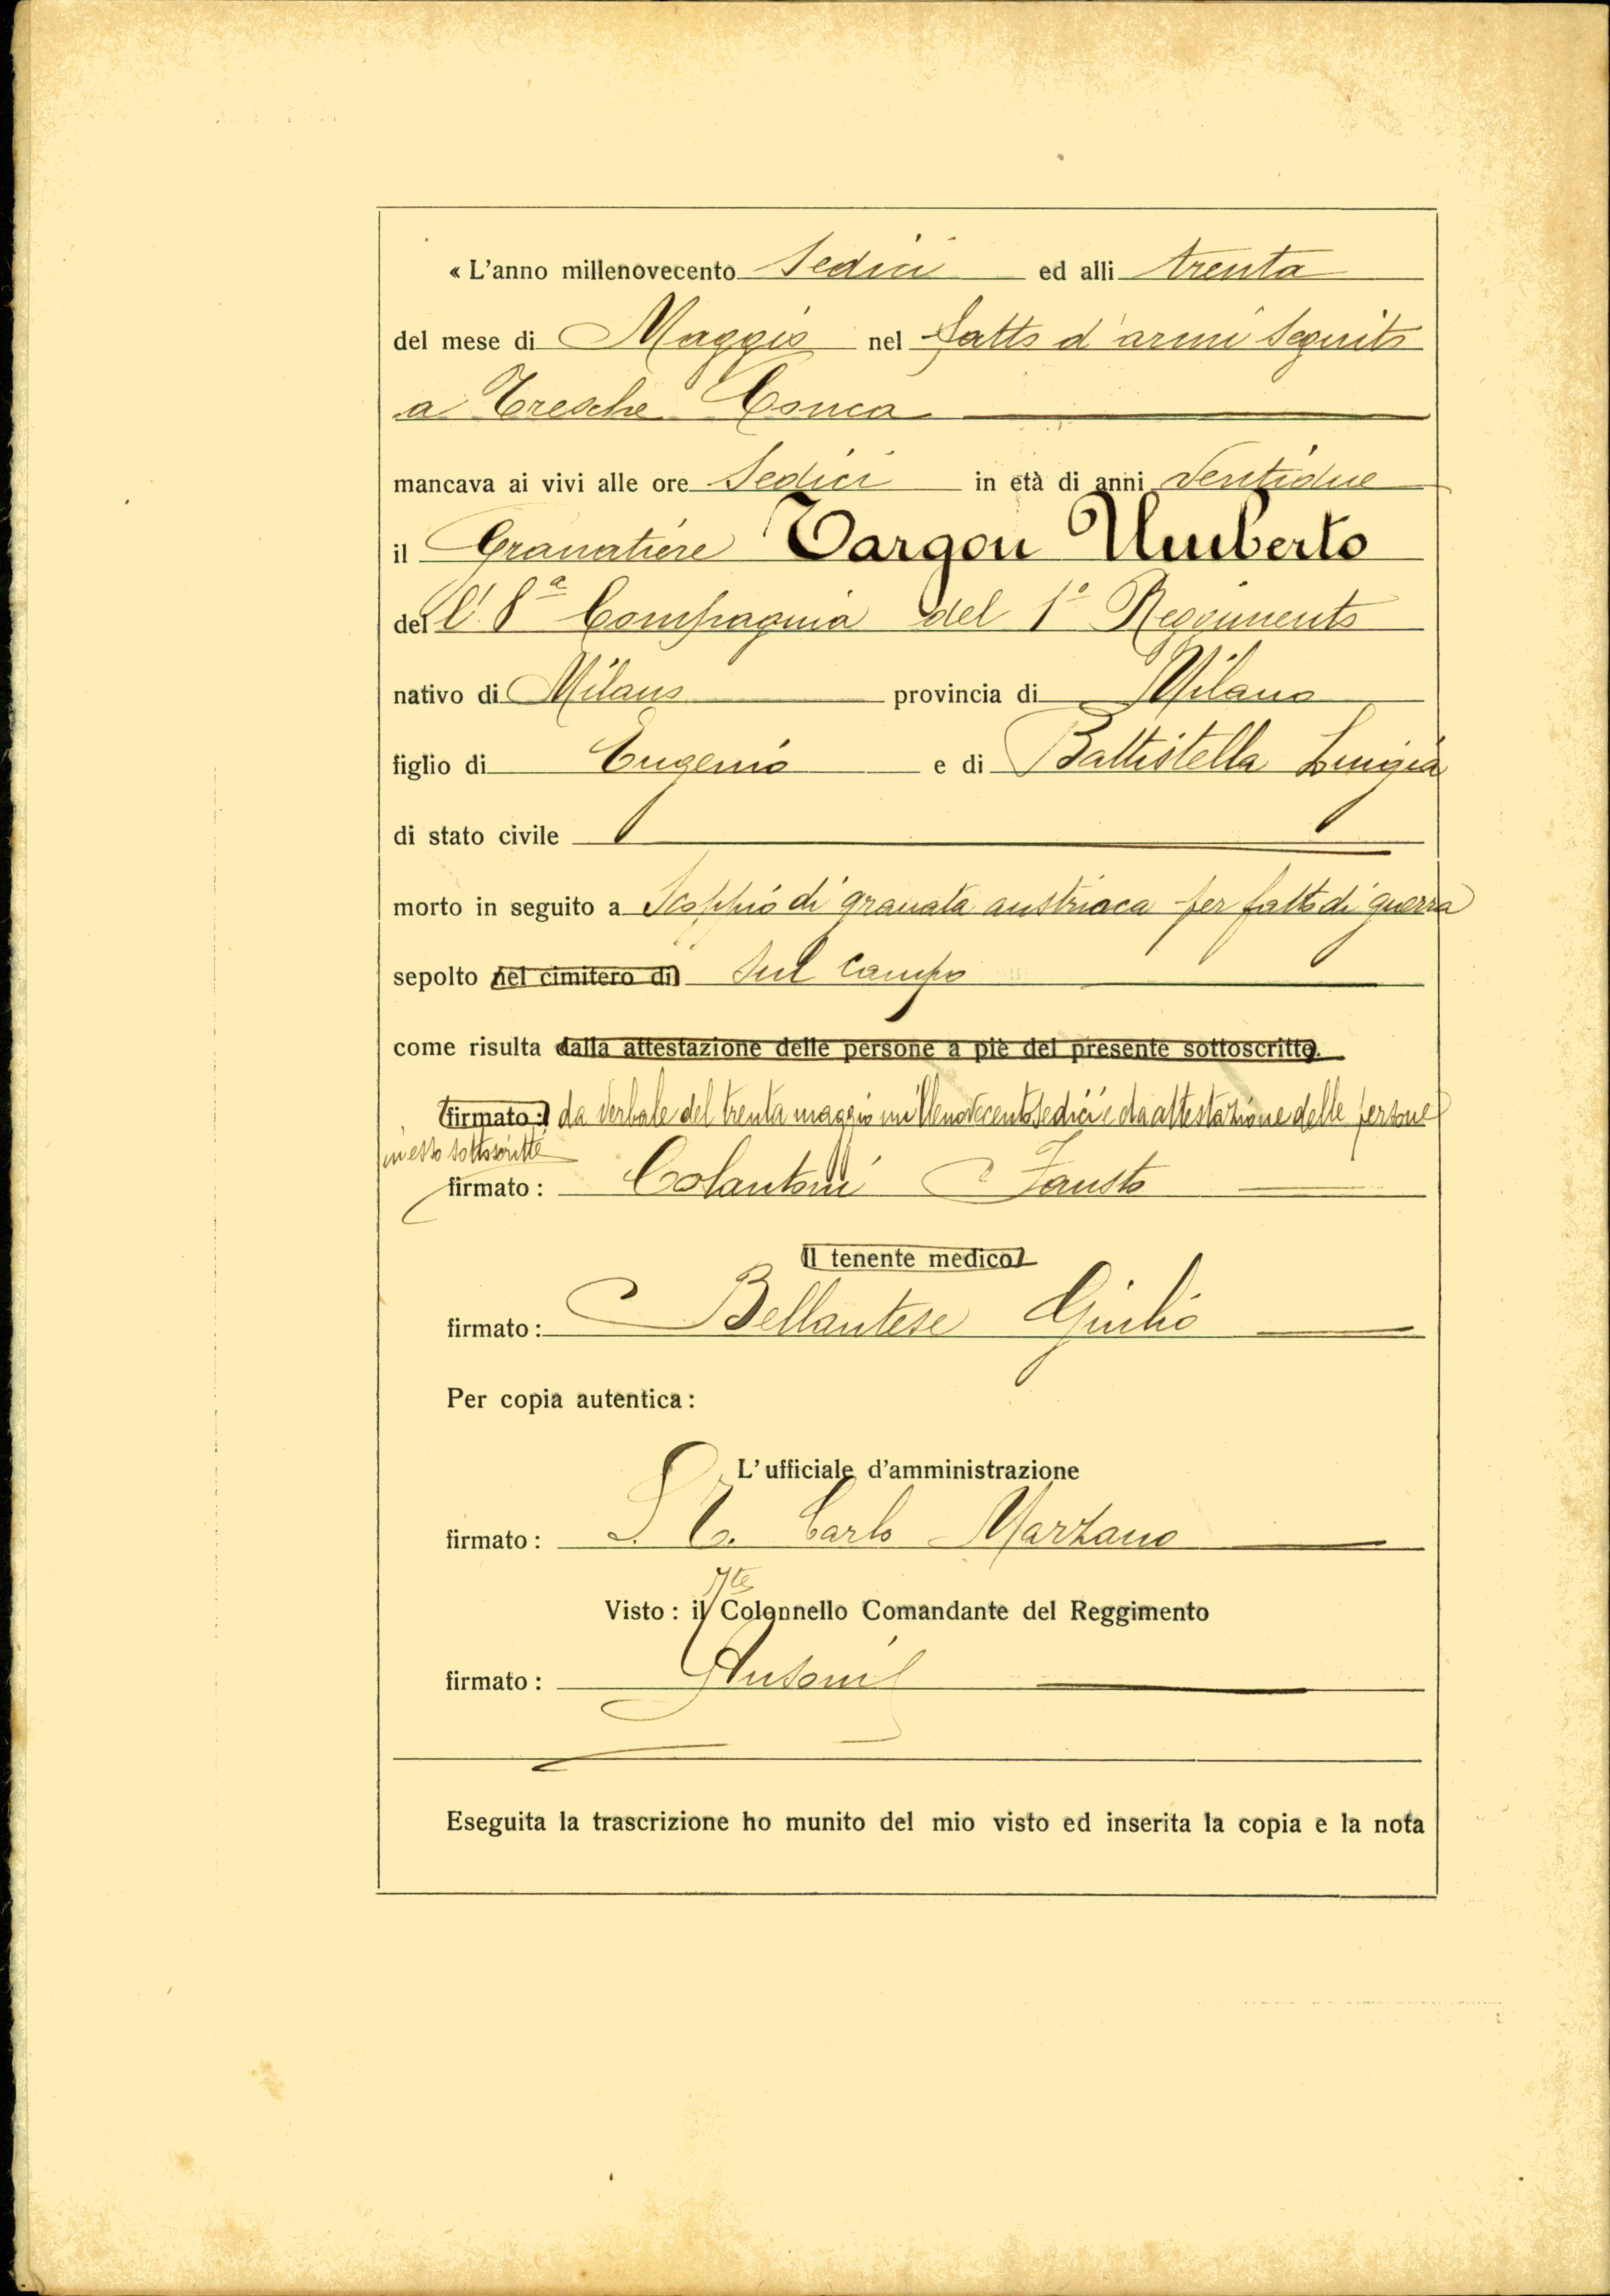 « L'anno millenovecento sedici ed alli trenta
del mese di Maggio nel fatto d'armi seguito
a Tresche Conca
mancava ai vivi alle ore sedici in età di anni ventidue
il Granatiere Targon Umberto
dell' 8ª Compagnia del 1º Reggimento
nativo di Milano provincia di Milano
figlio di Eugenio e di Battistella Luigia
di stato civile
morto in seguito a scoppio di granata austriaca per fatto di guerra
sepolto nel cimitero di sul campo
come risulta dalla attestazione delle persone a piè del presente sottoscritto.
firmato : da verbale del trenta maggio millenovecentosedici e da attestazione delle persone
in esso sottoscritte
firmato : Colantoni Fausto
Il tenente medico
firmato : Bellantese Giulio
Per copia autentica :
L'ufficiale d'amministrazione
firmato : S. T. Carlo Marzano
Visto : il Tte Colonnello Comandante del Reggimento
firmato : Anfossi
Eseguita la trascrizione ho munito del mio visto ed inserita la copia e la nota